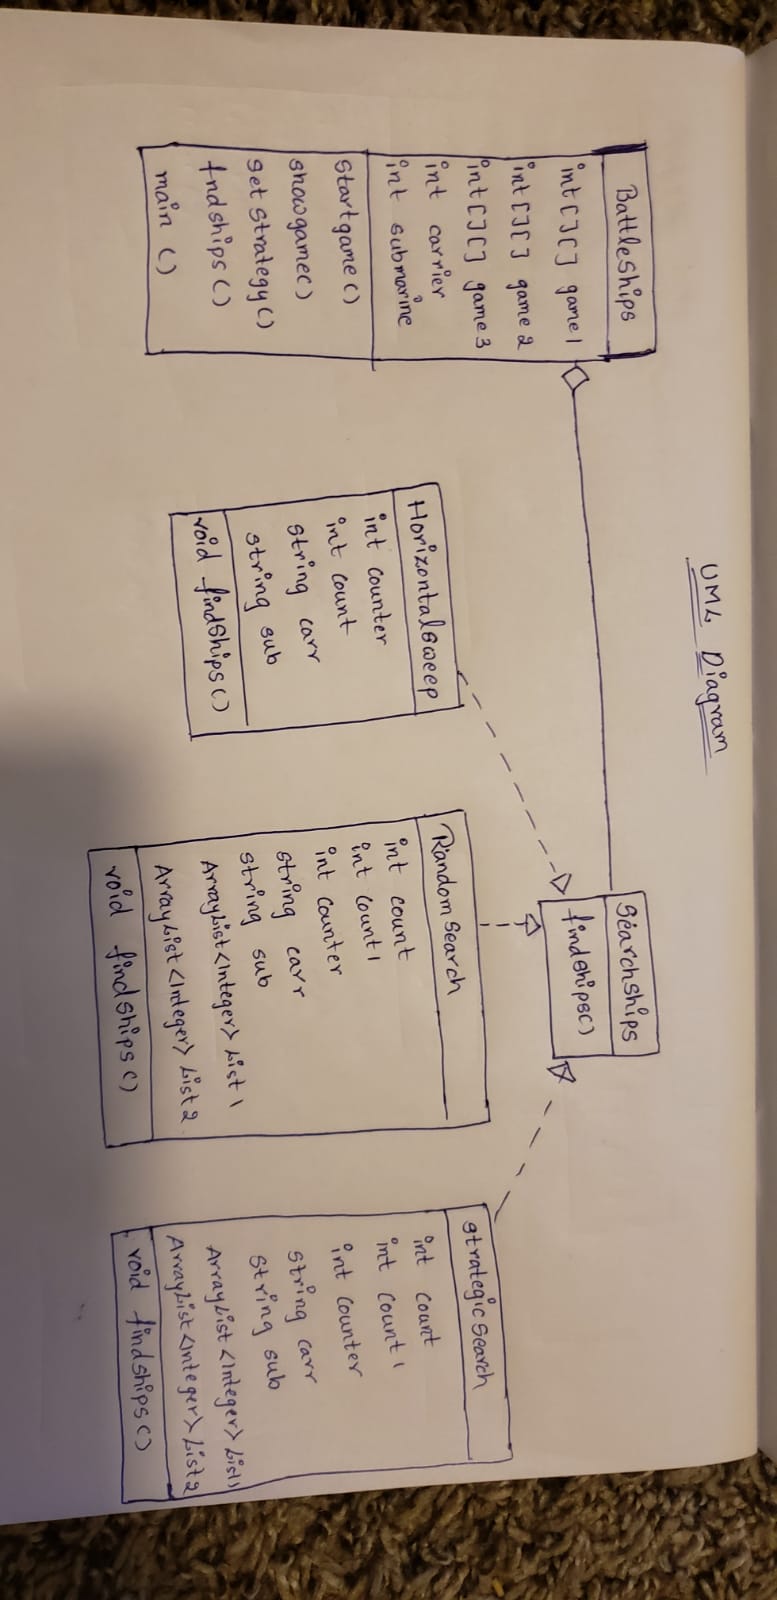 UML Diagram
BattleShips
int[][] game1
int[][] game2
int[][] game3
int carrier
int submarine
Startgame()
showgame()
set strategy()
fndships()
main()
Searchships
findships()
Horizontalsweep
int counter
int count
string carr
string sub
void findShips()
Random Search
int count
int count1
int counter
string carr
string sub
ArrayList<Integer> List1
ArrayList<Integer> List2
void findships()
strategic Search
int count
int count1
int counter
string carr
string sub
ArrayList<Integer> List1
ArrayList<Integer> List2
void findships()